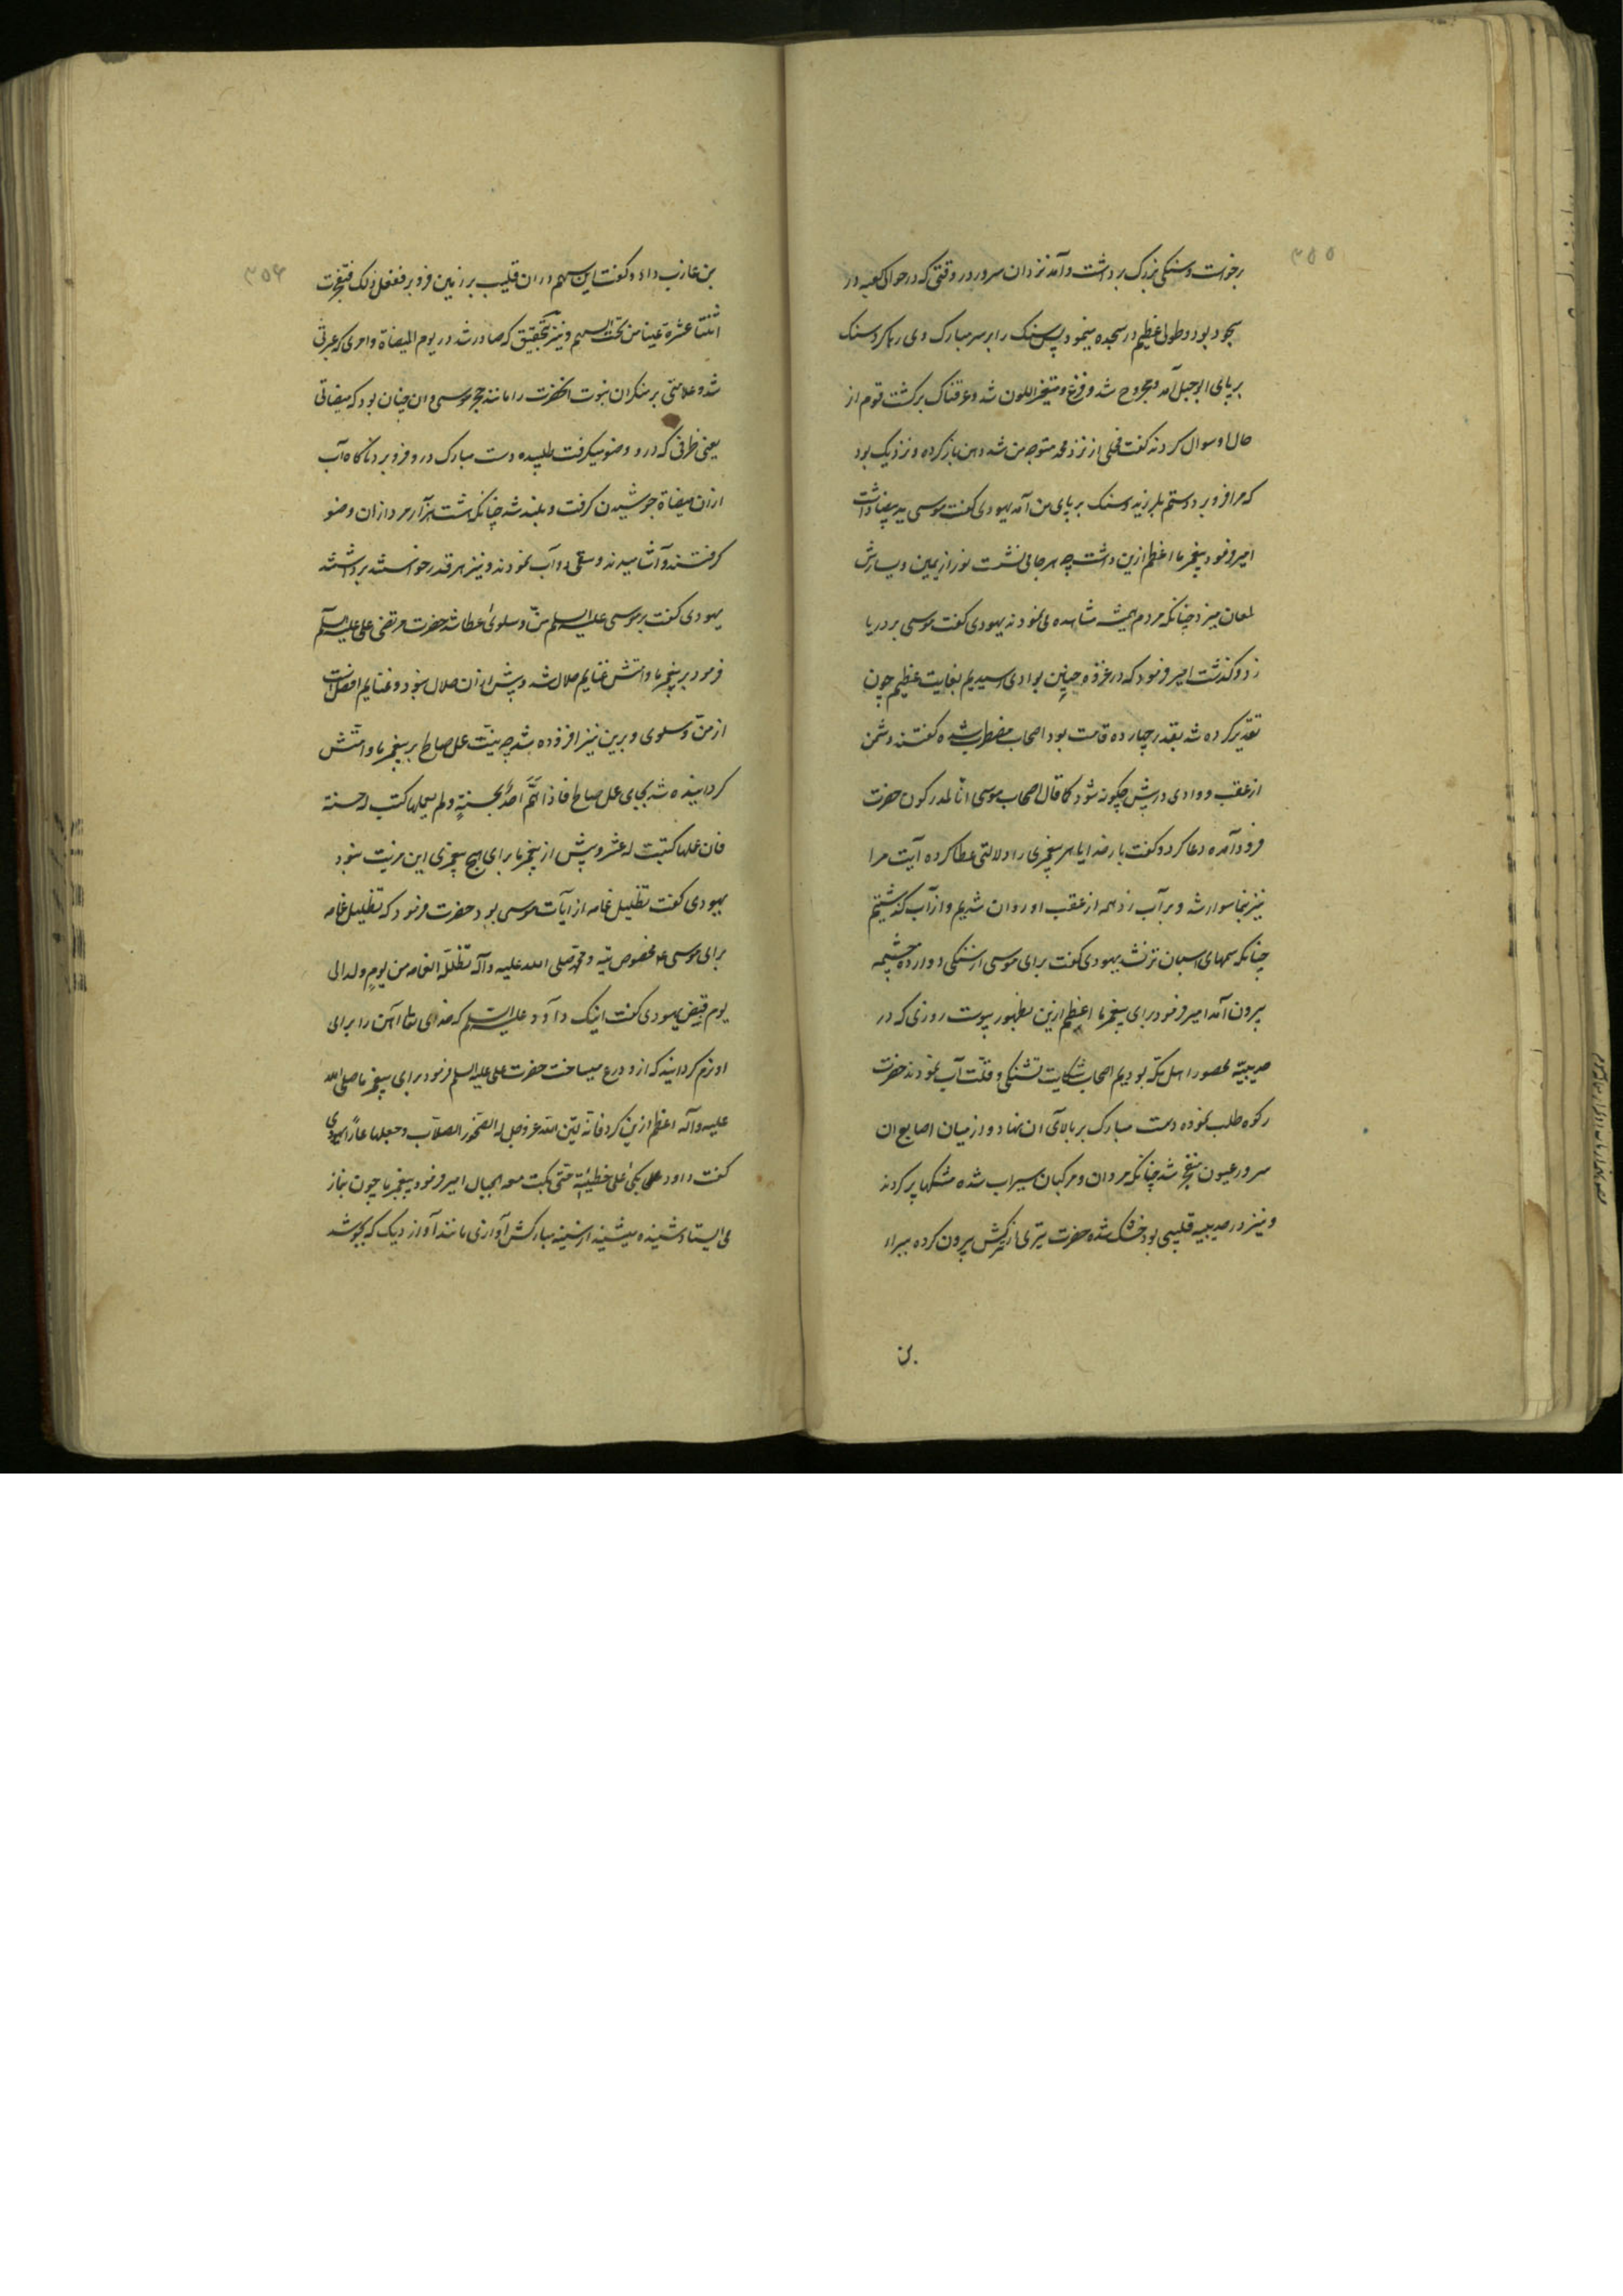 ۳۵۵
برخواست و سنکی بزرک برداشت و آمد نزد ان سرور در وقتی که در حوالی کعبه در
سجود بود و طولی عظیم در سجده مینمود پس سنک را بر سر مبارک وی رها کرد سنک
بر پای ابوجهل آمد و مجروح شد و فزع و متغیر اللون شد و عرقناک برکشت قوم از
حال او سوال کردند کفت فحلی از نزد محمد متوجه من شد دهن باز کرده و نزدیک بود
که مرا فرو برد دستم بلرزید و سنک بر پای من آمد یهودی کفت موسی ید بیضا داشت
امیر فرمود پیغمبر ما اعظم ازین داشت چه هر جا می نشست نور از یمین و یسارش
لمعان میزد چنانکه مردم همیشه مشاهده می نمودند یهودی کفت موسی بر دریا
زد و کذشت امیر فرمود که در غزوه حنین بوادی رسیدیم بغایت عظیم چون
تقدیر کرده شد بقدر چهارده قامت بود اصحاب مضطرب شده کفتند دشمن
از عقب و وادی در پیش چکونه شود کما قال اصحاب موسی انا لمدرکون حضرت
فرود آمده دعا کرد و کفت بار خدایا هر پیغمبری را دلالتی عطا کرده آیت مرا
نیز بنما سوار شد و بر آب زد همه از عقب او روان شدیم و از آب کذشتیم
چنانکه سمهای اسبان تر نشد یهودی کفت برای موسی از سنکی دوازده چشمه
بیرون آمد امیر فرمود برای پیغمبر ما اعظم ازین بظهور پیوست روزی که در
حدیبیه محصور اهل مکه بودیم اصحاب شکایت تشنکی و قلت آب نمودند حضرت
رکوه طلب نموده دست مبارک بر بالای ان نهاد و از میان اصابع ان
سرور عیون منفجر شد چنانکه مردان و مرکبان سیراب شده مشکها پر کردند
و نیز در حدیبیه قلیبی بود خشک شده حضرت تیری از ترکش بیرون کرده ببراء
بن
۳۵۶
بن عازب داد و کفت این سهم در ان قلیب بر زمین فرو بر ففعل ذلک فتفجرت
اثنتا عشرة عینا من تحت السهم و نیز بتحقیق که صادر شد در یوم المیضاة و امری که عبرتی
شد و علامتی بر منکران نبوت انحضرت را مانند حجر موسی و ان چنان بود که میضاتی
یعنی ظرفی که درو وضو میکرفت طلبیده دست مبارک درو فرو برد ناکاه آب
ازان میضاة جوشیدن کرفت و بلند شد چنانکه هشت هزار مرد ازان وضو
کرفتند و آشامیدند و سقی دواب نمودند و نیز هر قدر خواستند برداشتند
یهودی کفت بر موسی علیه السلم من و سلوی عطا شد حضرت مرتضی علی علیه السلم
فرمود بر پیغمبر ما و امتش غنایم حلال شد و پیش ازان حلال نبود و غنایم افضل است
از من و سلوی و برین نیز افزوده شد چه نیت عمل صالح بر پیغمبر ما و امتش
کردانیده شد بجای عمل صالح فاذا هم احد بحسنة و لم یعملها کتب له حسنة
فان عملها کتبت له عشر و پیش از پیغمبر ما برای هیچ پیغمبری این مزیت نبود
یهودی کفت تظلیل غمامه از ایات موسی بود حضرت فرمود که تظلیل غمامه
برای موسی ع مخصوص تیه و محمد صلی الله علیه وآله تظلله الغمامه من یوم ولد الی
یوم قبض یهودی کفت اینک داود علیه السلم که خدای تعالی آهن را برای
او نرم کردانید که ازو درع میساخت حضرت علی علیه السلم فرمود برای پیغمبر ما صلی الله
علیه وآله اعظم ازین کرد فانه لین الله عز و جل له الصخور الصلاب و جعلها غارا یهودی
کفت داود علی بکی علی خطیئته حتی بکت معه الجبال امیر فرمود پیغمبر ما چون بنماز
می ایستاد شنیده میشد از سینه مبارکش آوازی مانند آواز دیک که بجوشد